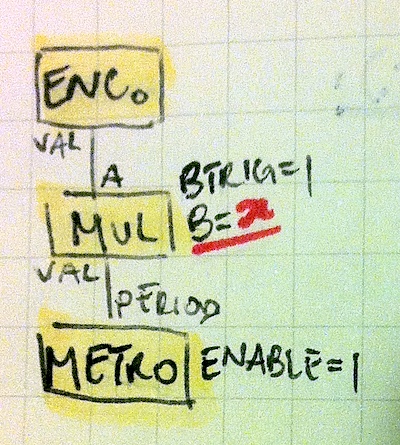 ENC.
VAL
A
BTRIG=1
MUL B=x
VAL
PERIOD
METRO ENABLE=1